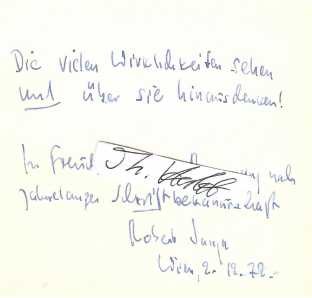 Die vielen Wirklichkeiten sehen
und über sie hinausdenken!
In Freud
Th.
nach
jahrelanger Schriftbekanntschaft
Robert Jungk
Wien, 2. 12. 72.-